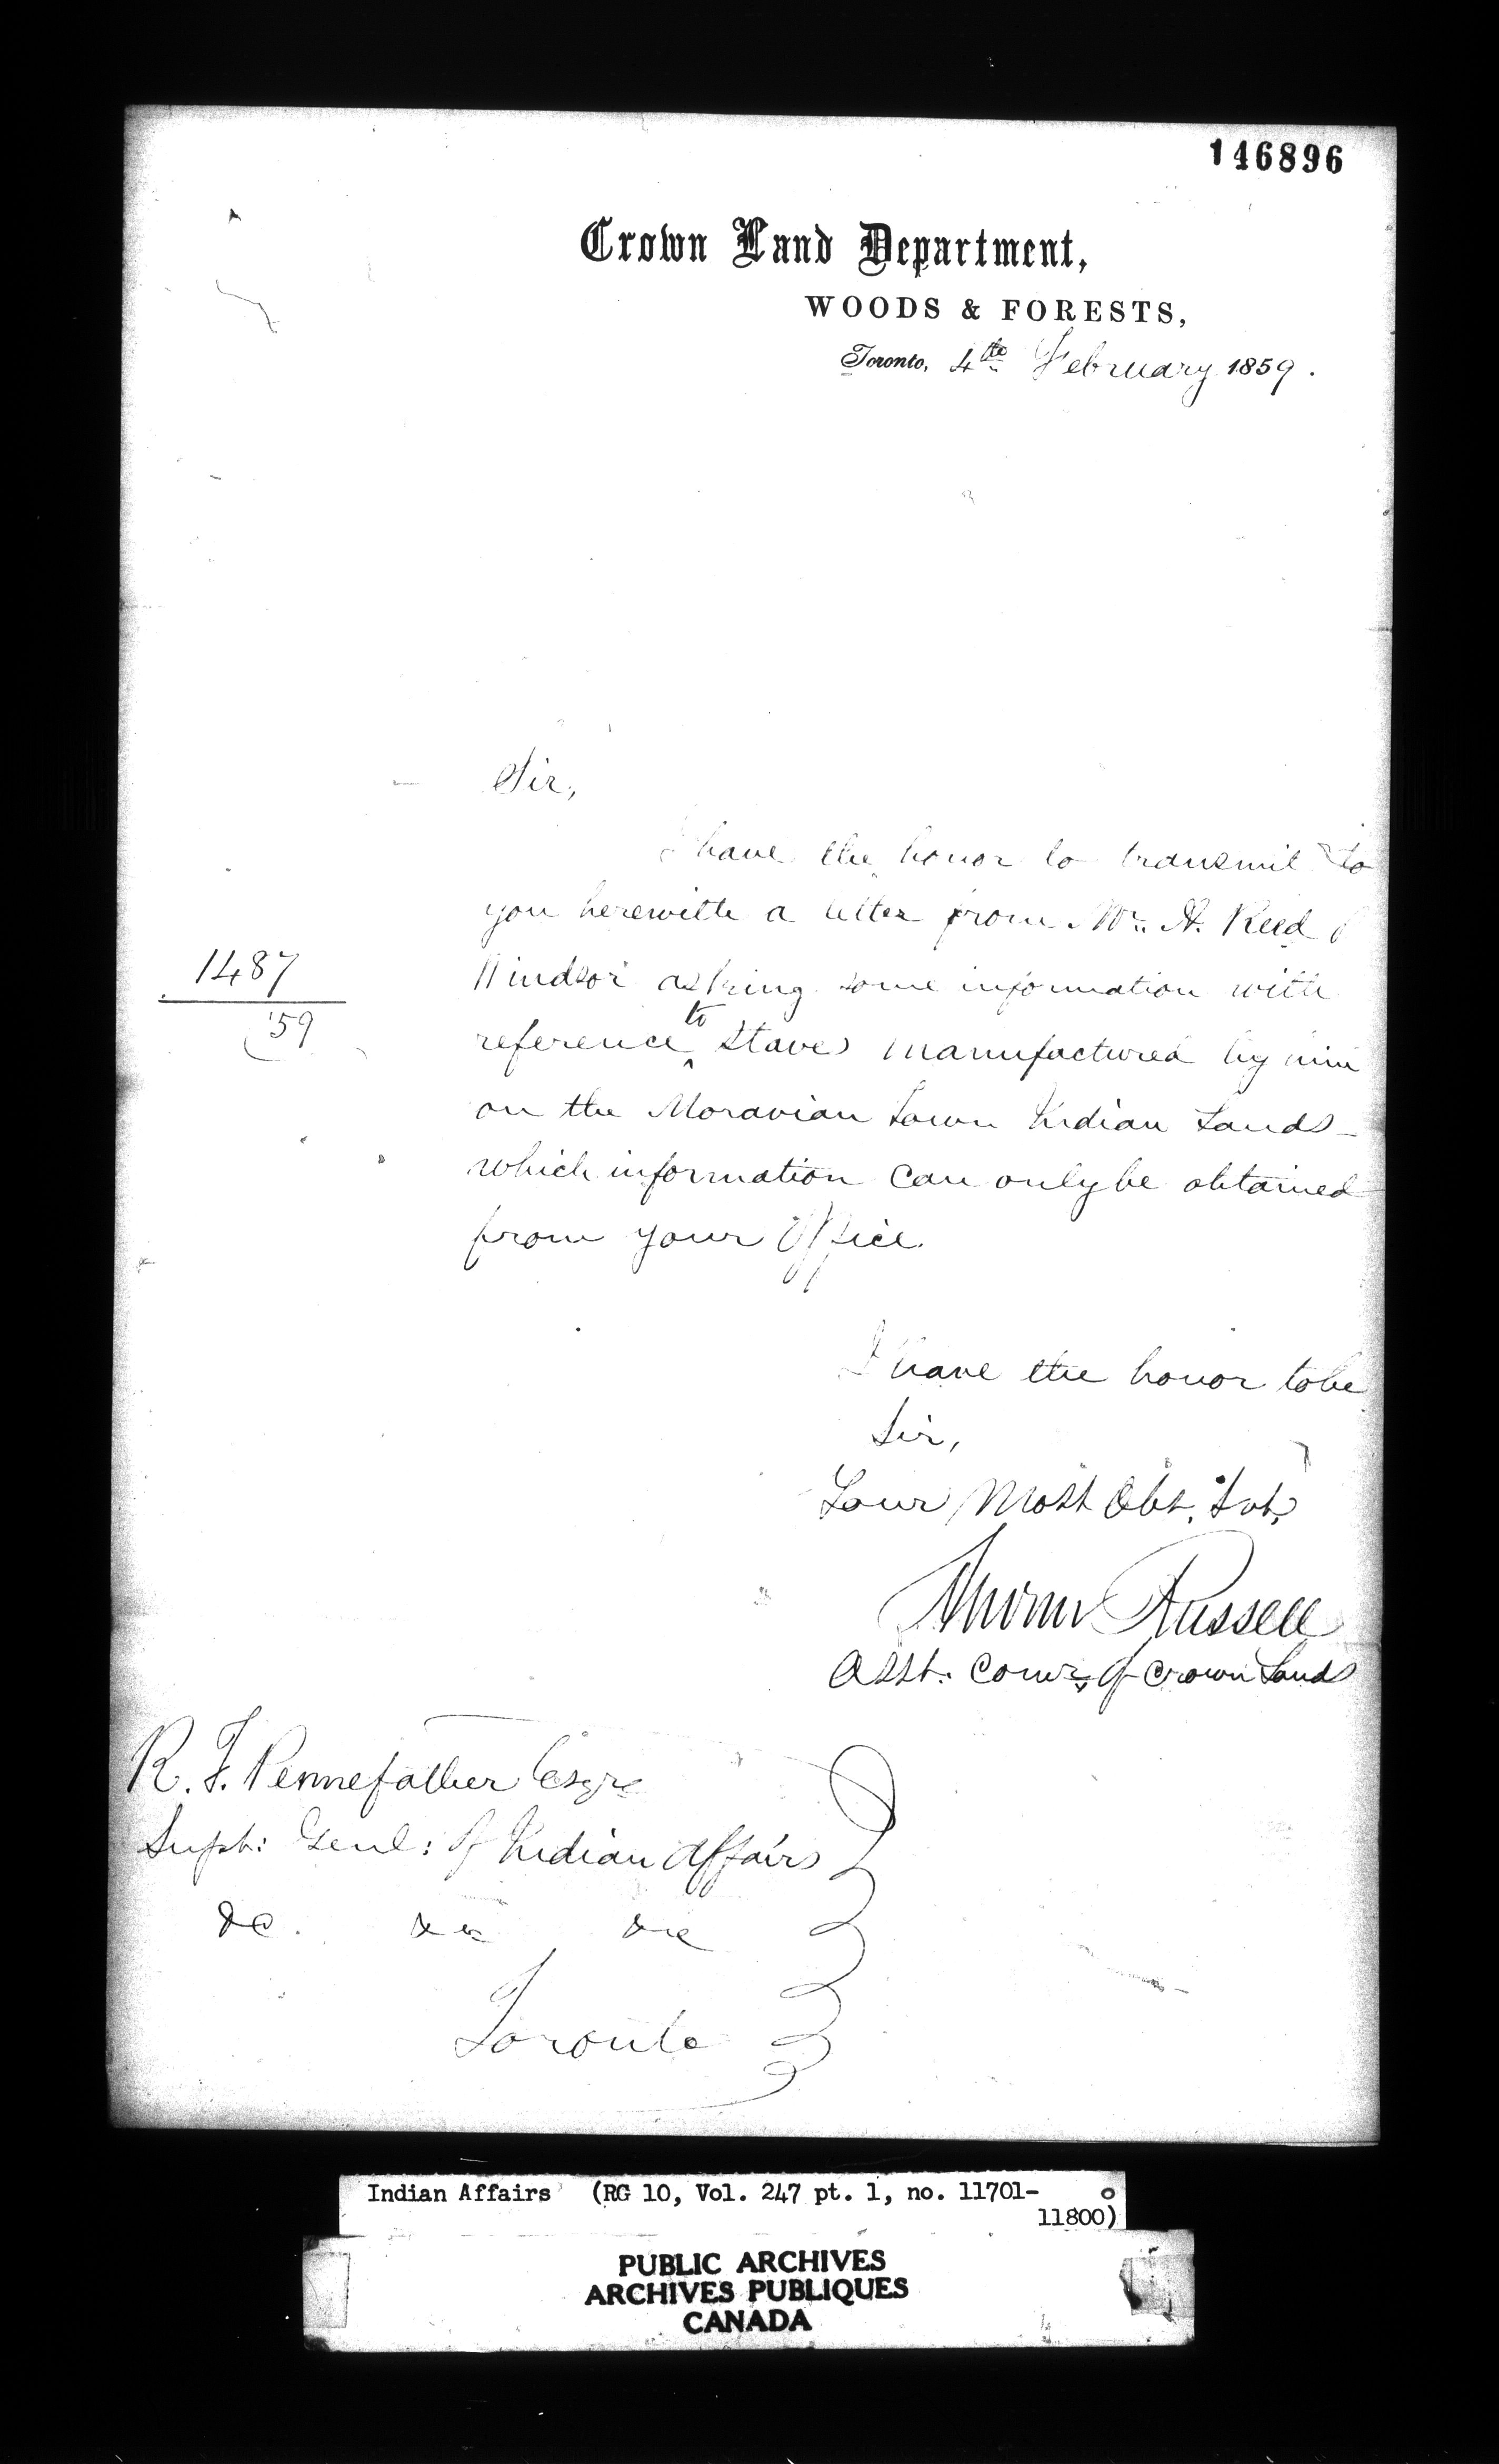 146896
Crown Land Department,
WOODS & FORESTS,
Toronto, 4th February 1859.
Sir,
I have the honor to transmit to
you herewith a letter from Mr. A. Reed
Windsor asking some information with
1487
reference to Staves manufactured by him
'59
on the Moravian Town Indian Lands
which information can only be obtained
from your Office.
I have the honor to be
Sir,
Your Most Obt. Svt.
Russell
Asst. Comr. of Crown Lands
R. T. Pennefather Esqre
Supt: Genl: of Indian Affairs
&c. &c &c
Toronto
Indian Affairs (RG 10, Vol. 247 pt. 1, no. 11701-
11800)
PUBLIC ARCHIVES
ARCHIVES PUBLIQUES
CANADA